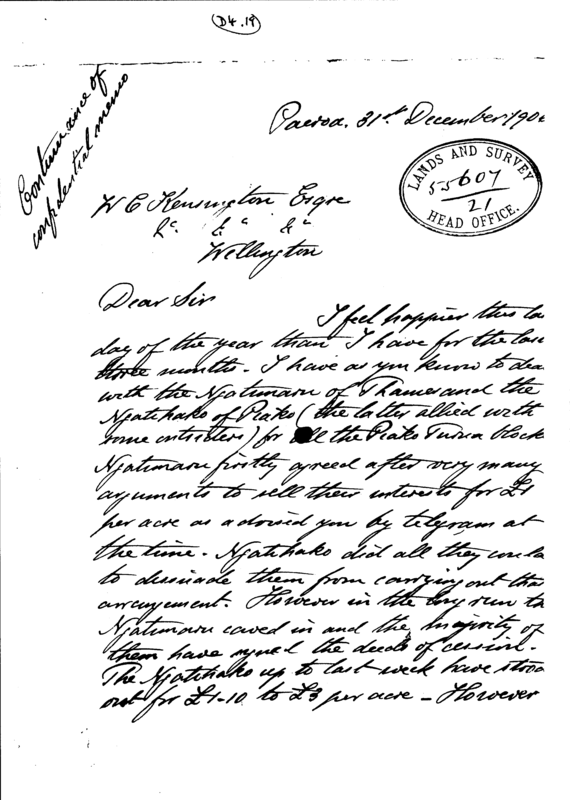 D4.19
Continuance of
confidential memo
Paeroa. 31st December 190
LANDS AND SURVEY
55607
21
HEAD OFFICE.
W C Kensington Esqre
&c &c &c
Wellington
Dear Sir
I feel happier this la
day of the year than I have for the last
three months. I have as you know to dea
with the Ngatimaru of Thames and the
Ngatihako of Piako (the latter allied with
some outsiders) for all the Piako block
Ngatimaru firstly agreed after very many
arguments to sell their interests for £1
per acre as advised you by telegram at
the time. Ngatihako did all they could
to dissuade them from carrying out tha
arrangement. However in the long run th
Ngatimaru caved in and the majority of
them have signed the deeds of cession.
The Ngatihako up to last week have stood
out for £1-10 to £3 per acre - However